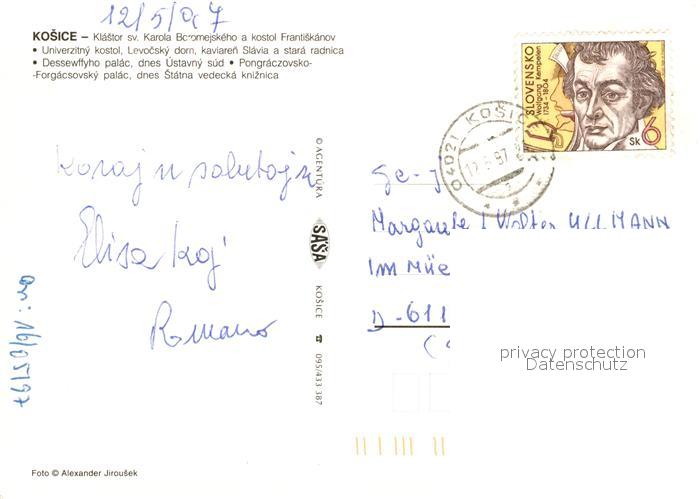 12/5/97
KOŠICE – Kláštor sv. Karola Boromejského a kostol Františkánov
• Univerzitný kostol, Levočský dom, kaviareň Slávia a stará radnica
• Dessewffyho palác, dnes Ústavný súd • Pongráczovsko-
-Forgácsovský palác, dnes Štátna vedecká knižnica
SLOVENSKO
Wolfgang Kempelen
1734-1804
Sk 6
04021 KOŠIC
12.5.97
Koraj n salutojn
Elisa kaj
Romano
an: 16/05/97
© AGENTÚRA
SÁŠA
KOŠICE
☎ 095/433 387
Ge-j
Margarete Walter ULLMANN
Im Müe
D-611
privacy protection
Datenschutz
Foto © Alexander Jiroušek